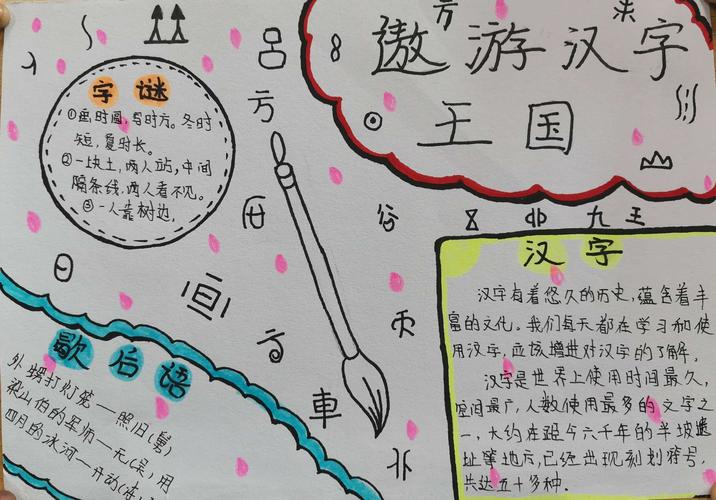 遨游汉字
王国
字谜
①画时圆,写时方。冬时
短,夏时长。
②一块土,两人站,中间
隔条线,两人看不见。
③一人靠树边,
歇后语
外甥打灯笼——照旧(舅)
梁山伯的军师——无(吴)用
四月的冰河——开动(冻)
汉字
汉字有着悠久的历史,蕴含着丰
富的文化。我们每天都在学习和使
用汉字,应该增进对汉字的了解,
汉字是世界上使用时间最久,
空间最广,人数使用最多的文字之
一,大约在距今六千年的半坡遗
址等地方,已经出现刻划符号,
共达五十多种.
方
呂
8
方
日
車
九
王